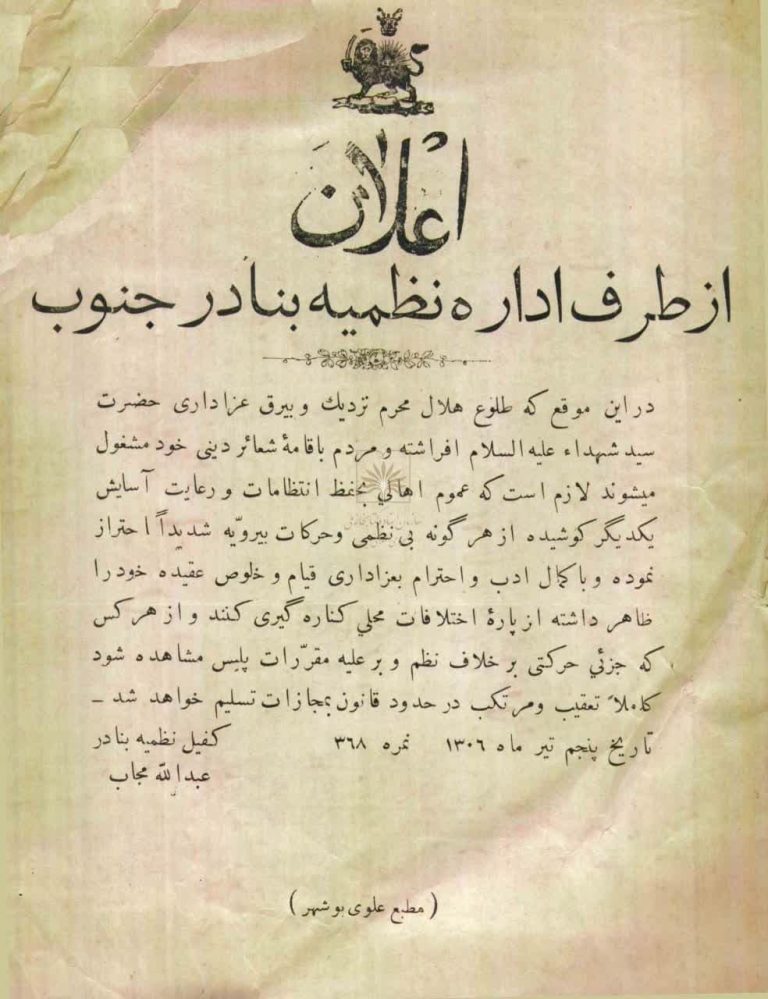 اعلان
از طرف اداره نظمیه بنادر جنوب
در این موقع که طلوع هلال محرم نزدیك و بیرق عزاداری حضرت
سید شهداء علیه السلام افراشته و مردم باقامهٔ شعائر دینی خود مشغول
میشوند لازم است که عموم اهالي بحفظ انتظامات و رعایت آسایش
یکدیگر کوشیده از هر گونه بی نظمی و حرکات بیرویّه شدیداً احتراز
نموده و با کمال ادب و احترام بعزاداری قیام و خلوص عقیده خود را
ظاهر داشته از پارهٔ اختلافات محلي کناره گیری کنند و از هر کس
که جزئي حرکتی بر خلاف نظم و بر علیه مقرّرات پلیس مشاهده شود
کاملاً تعقیب و مرتکب در حدود قانون بمجازات تسلیم خواهد شد ـ
تاریخ پنجم تیر ماه ۱۳۰۶ نمره ۳۶۸ کفیل نظمیه بنادر
عبدالله مجاب
( مطبع علوی بوشهر )